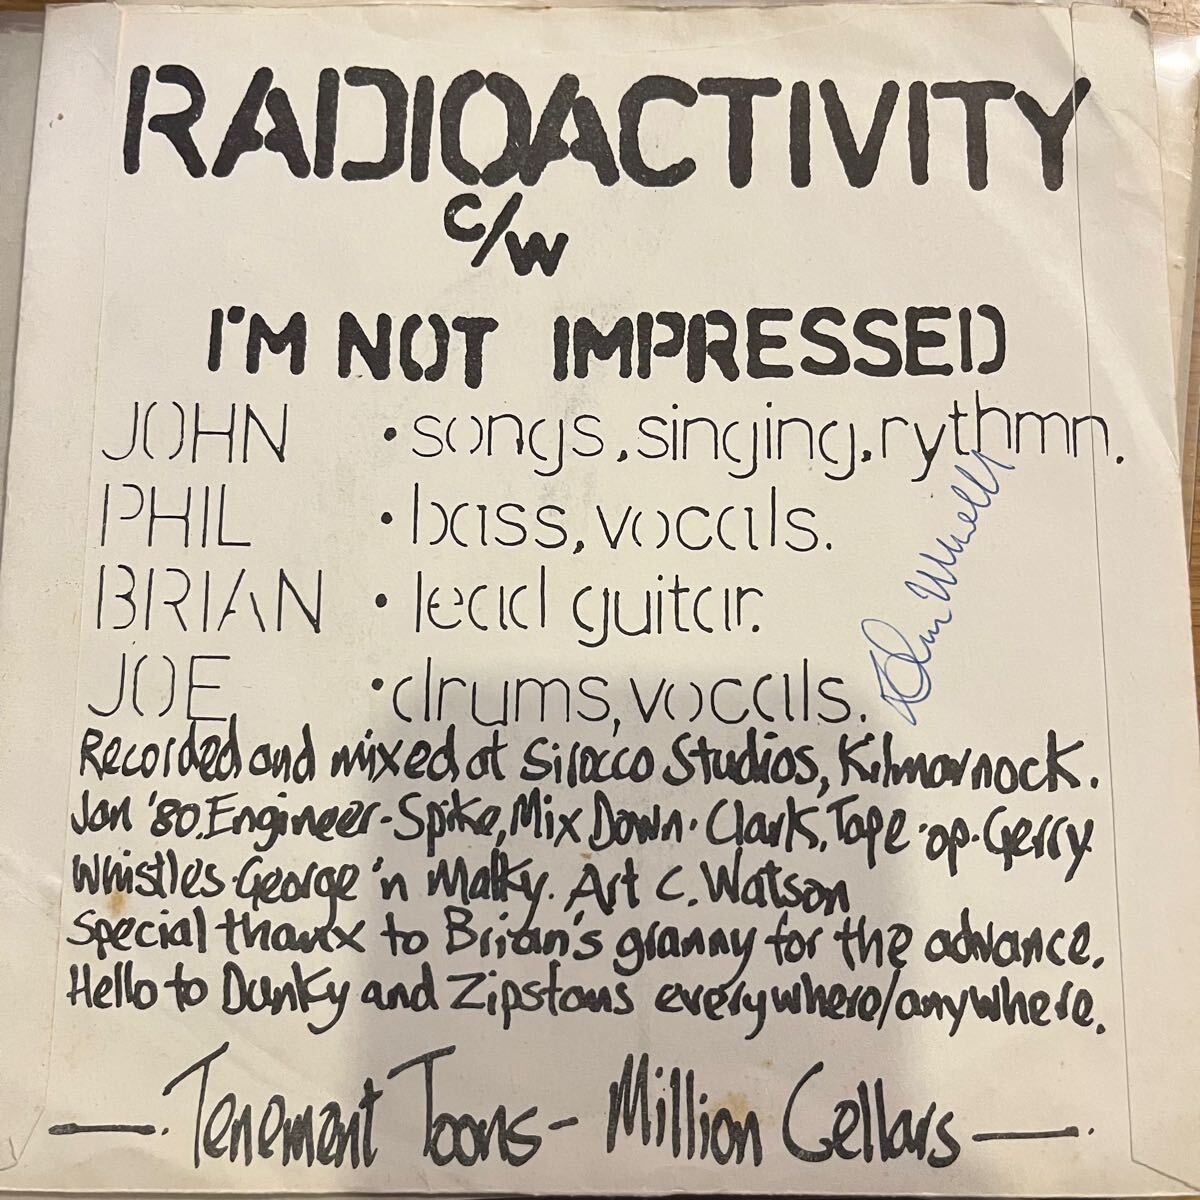 RADIOACTIVITY
c/w
I'M NOT IMPRESSED
JOHN • songs, singing, rythmn.
PHIL • bass, vocals.
BRIAN • lead guitar.
JOE • drums, vocals.
Recorded and mixed at Sirocco Studios, Kilmarnock.
Jan '80. Engineer - Spike, Mix Down · Clark, Tape · op · Gerry
Whistles · George 'n Malky. Art C. Watson
Special thanx to Brian's granny for the advance.
Hello to Dunky and Zipstans everywhere/anywhere.
— Tenement Toons - Million Cellars —